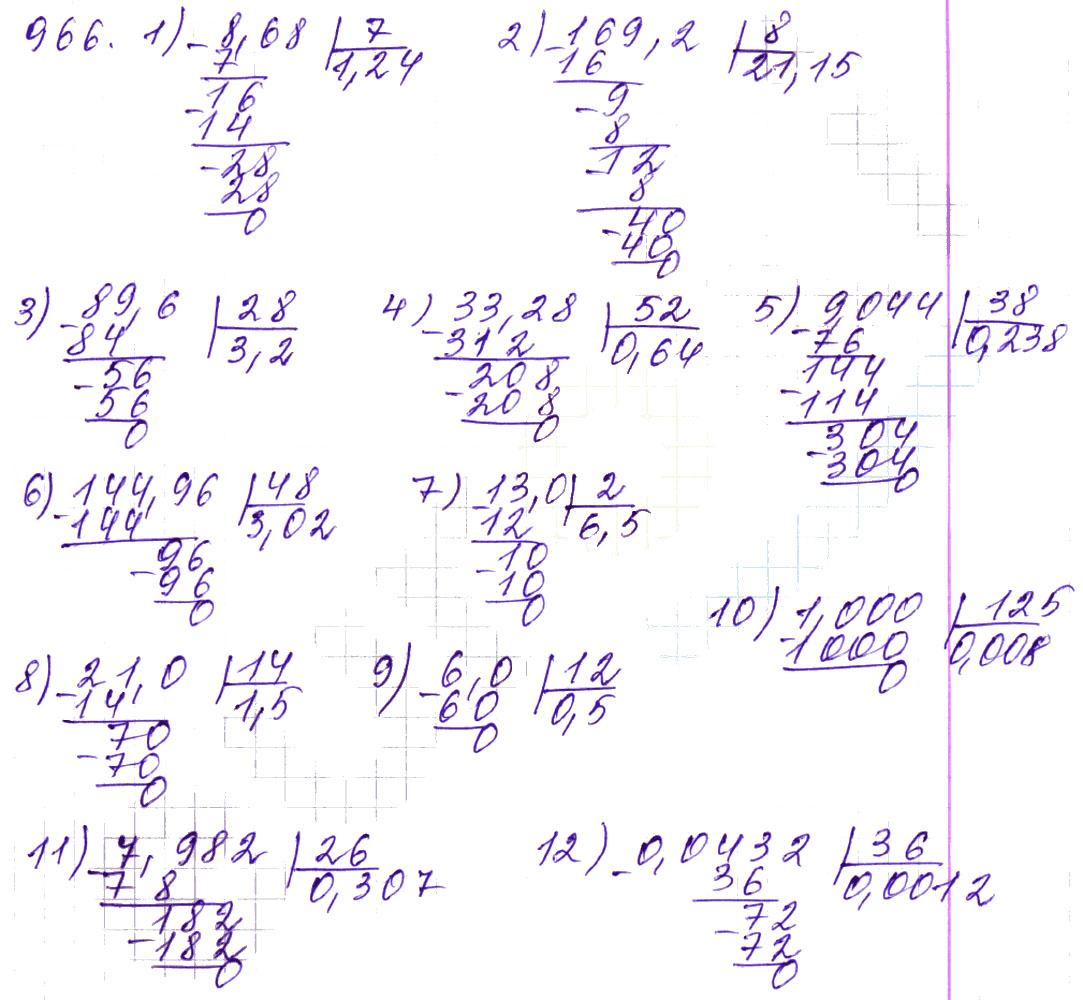 966. 1) -8,68 | 7
7 1,24
-16
14
-28
28
0
2) -169,2 | 8
16 21,15
-9
8
-12
8
-40
40
0
3) -89,6 | 28
84 3,2
-56
56
0
4) -33,28 | 52
312 0,64
-208
208
0
5) -9,044 | 38
76 0,238
-144
114
-304
304
0
6) -144,96 | 48
144 3,02
-96
96
0
7) -13,0 | 2
12 6,5
-10
10
0
8) -21,0 | 14
14 1,5
-70
70
0
9) -6,0 | 12
60 0,5
0
10) -1,000 | 125
1000 0,008
0
11) -7,982 | 26
78 0,307
-182
182
0
12) -0,0432 | 36
36 0,0012
-72
72
0